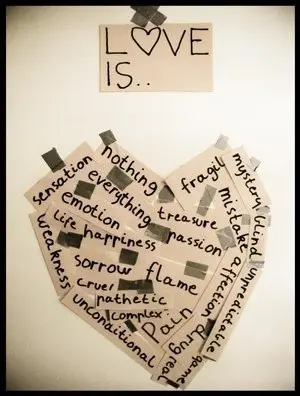 L♡VE
IS..
nothing
sensation
everything
fragile
mystery
emotion
treasure
mistake
blind
life
happiness
passion
affection
unpredictable
weakness
sorrow
flame
cruel
pathetic
complex
unconditional
Pain
drug
real
game